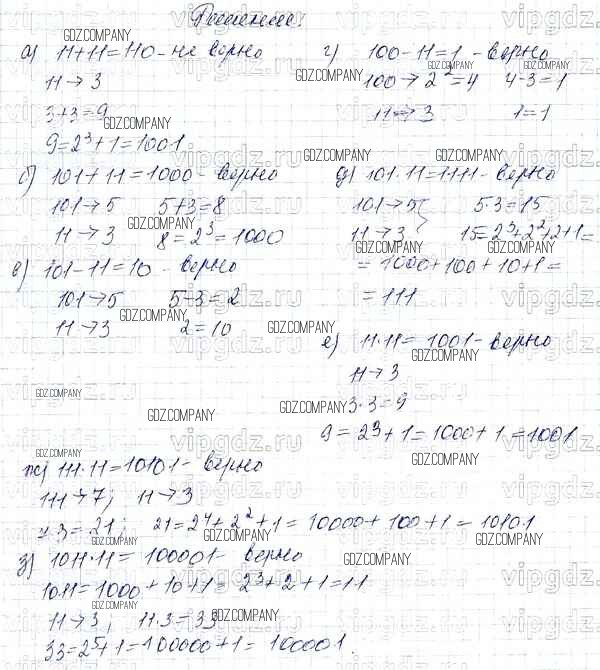 Решение:
а) 11+11=110 - не верно
11→3
3+3=9
9=2³+1=1001
б) 101+11=1000 - верно
101→5 5+3=8
11→3 8=2³=1000
в) 101-11=10 - верно
101→5 5-3=2
11→3 2=10
г) 100-11=1 - верно
100→2²=4 4-3=1
11→3 1=1
д) 101·11=1111 - верно
101→5 5·3=15
11→3 15=2³+2²+2+1=
= 1000+100+10+1=
= 111
е) 11·11=1001 - верно
11→3
3·3=9
9=2³+1=1000+1=1001
ж) 111·11=10101 - верно
111→7; 11→3
·3=21; 21=2⁴+2²+1=10000+100+1=10101
з) 1011·11=100001 - верно
1011=1000+10+1=2³+2+1=11
11→3; 11·3=33
33=2⁵+1=100000+1=100001.
vipgdz.ru
GDZ.COMPANY